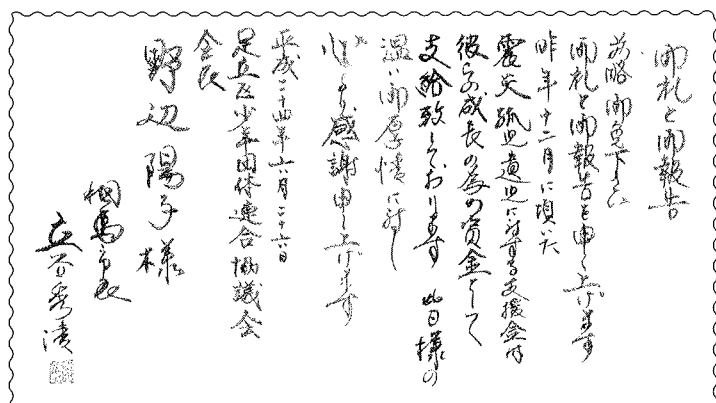 御礼と御報告
前略 御免下さい
御礼と御報告を申し上げます
昨年十二月に頂いた
震災孤児遺児に対する支援金は
彼らの成長の為の資金として
支給致しております 皆様の
温い御厚情に対し
心より感謝申し上げます
平成二十四年六月二十六日
足立区少年団体連合協議会
会長
野辺陽子様
相馬市長
立谷秀清